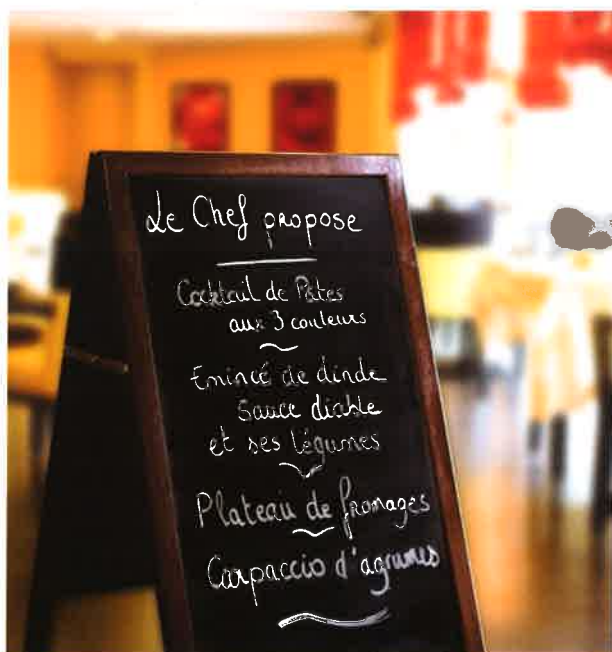 Le Chef propose
Cocktail de Pâtes
aux 3 couleurs
Emincé de dinde
Sauce diable
et ses légumes
Plateau de fromages
Carpaccio d'agrumes